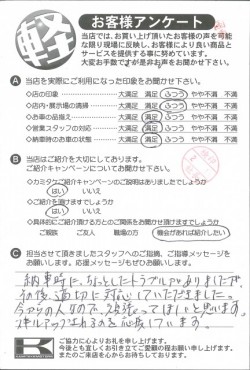 軽
お客様アンケート
当店では、お買い上げ頂いたお客様の声を可能
な限り現場に反映し、お客様により良い商品と
サービスを提供する事に努めています。
大変お手数ですが是非お声をお聞かせ下さい。
A 当店を実際にご利用になった印象をお聞かせ下さい。
◇店の印象 大満足 満足 ふつう やや不満 不満
◇店内・展示場の清掃 大満足 満足 ふつう やや不満 不満
◇お車の品揃え 大満足 満足 ふつう やや不満 不満
◇営業スタッフの対応 大満足 満足 ふつう やや不満 不満
◇納車時のお車の状態 大満足 満足 ふつう やや不満 不満
B 当店はご紹介を大切にしております。
ご紹介キャンペーンについてお聞かせ下さい。
◇カミタケご紹介キャンペーンのご説明はありましたでしょうか
はい いいえ
◇ご紹介を頂けますでしょうか
はい いいえ
◇具体的にご紹介頂ける方とのご関係をお聞かせ頂けますでしょうか
ご親族 ご友人 職場の方 機会があれば紹介したい
C 担当させて頂きましたスタッフへのご指摘、ご指導メッセージを
お願いします。応援メッセージもぜひお願いします。
納車時に、ちょっとしたトラブルがありましたが、
その後、適切に対応していただきました。
今からの人なので、頑張ってほしいと思います。
スキルアップされるのを応援しています。
K
ご協力に心よりお礼を申し上げます。
今後とも宜しくお引き立てご愛顧の程お願い申し上げます。
またのご来店を心からお待ちしております。